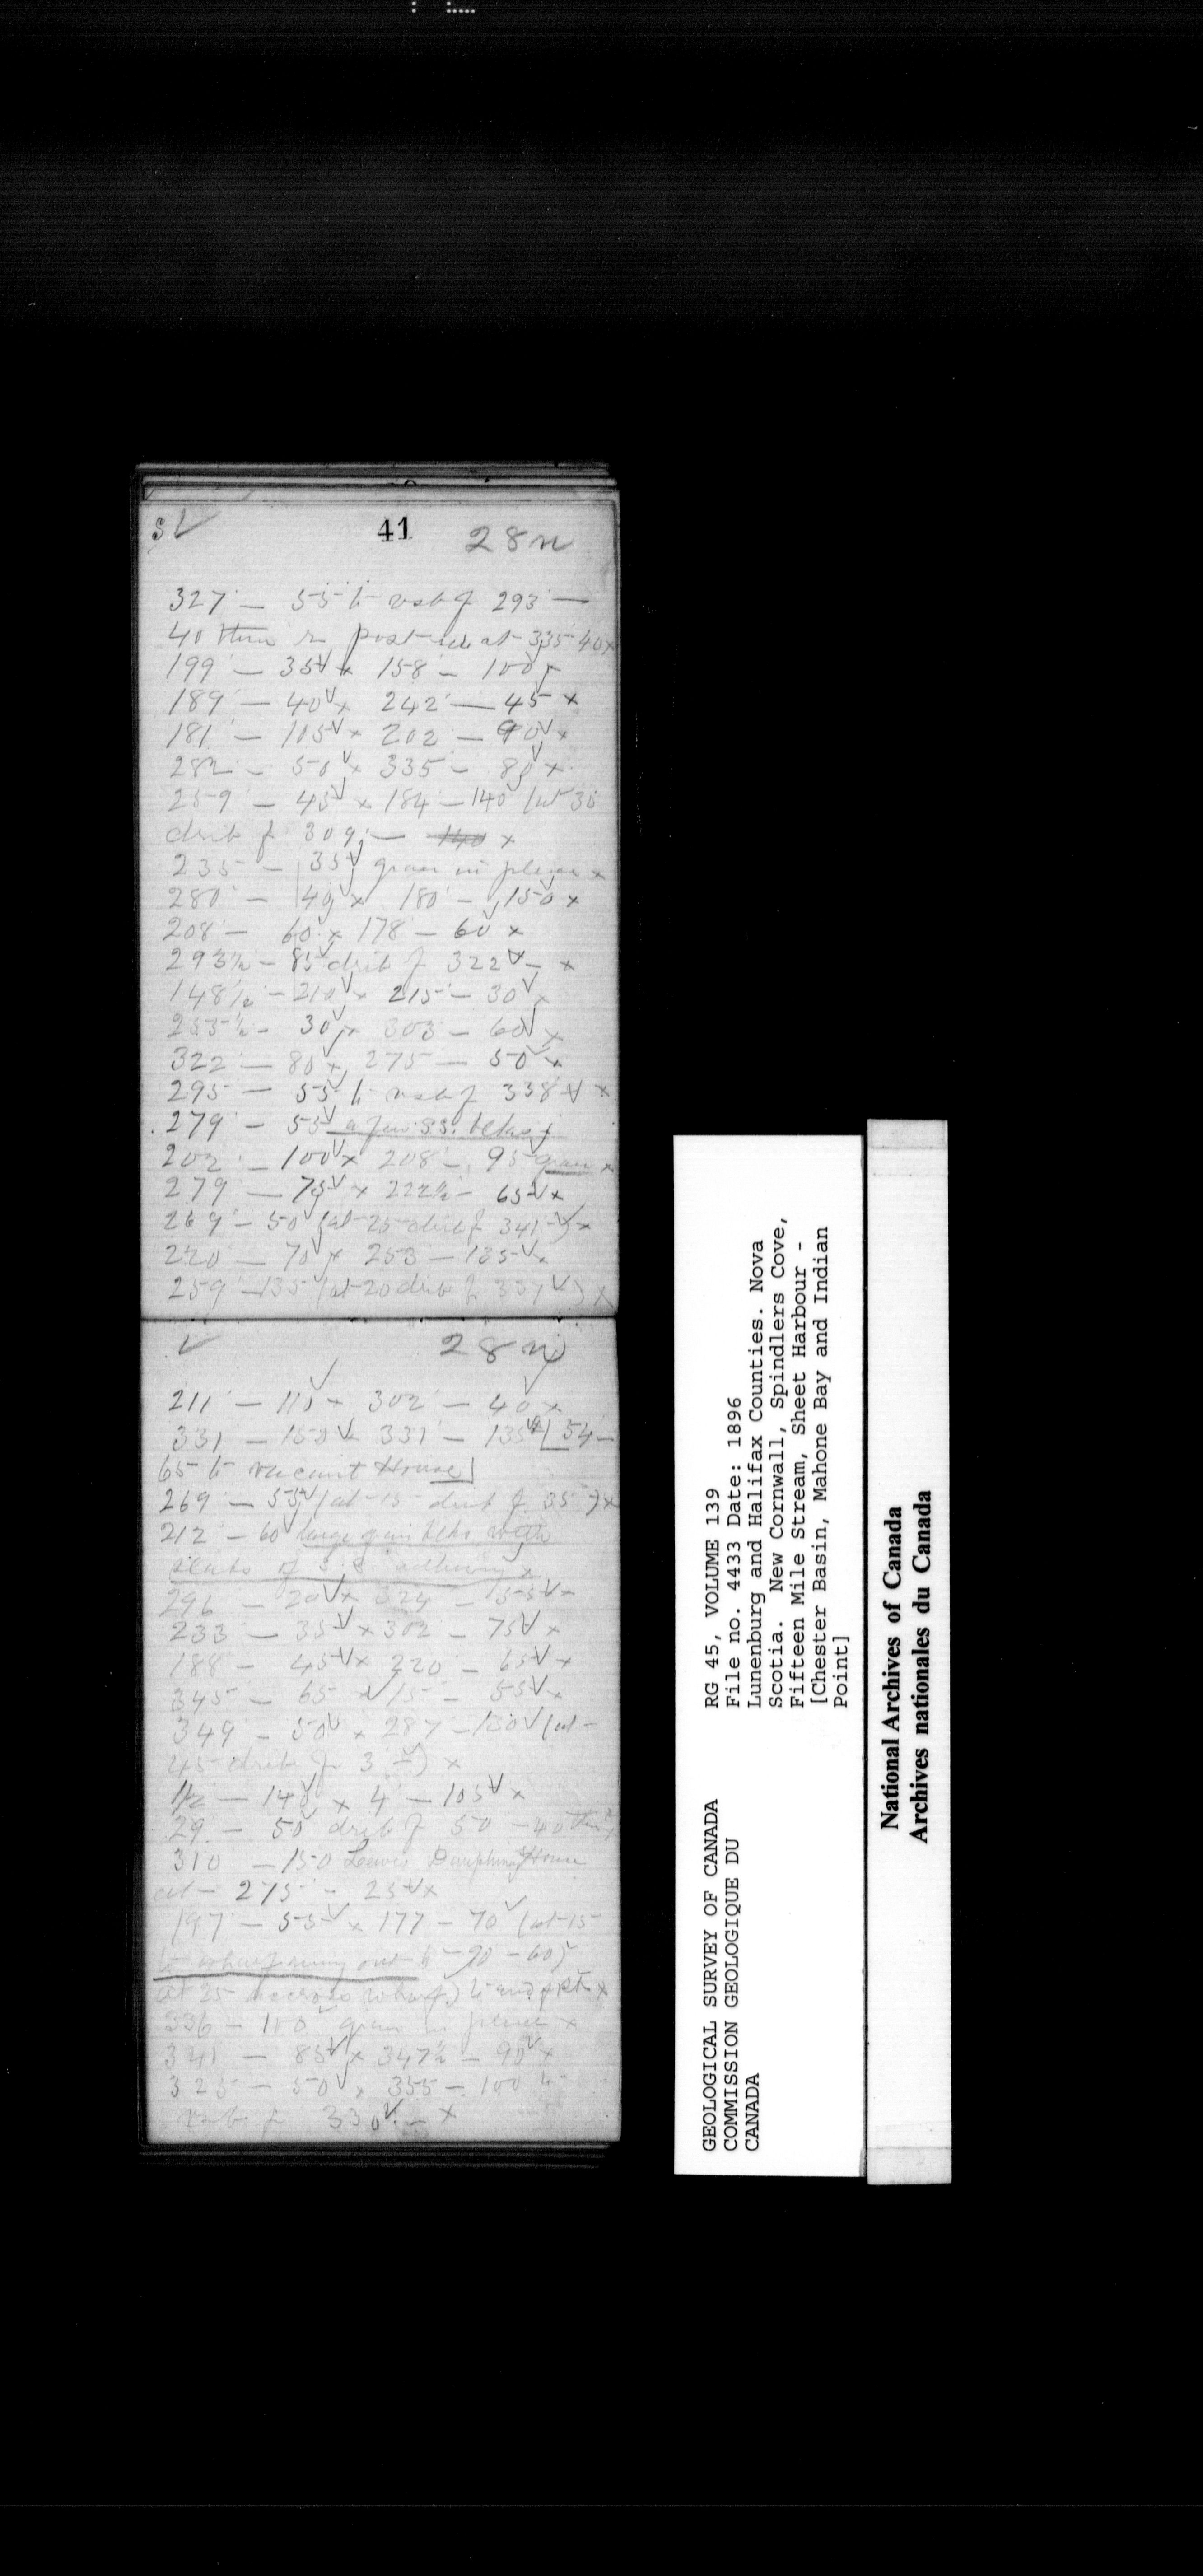 41 28n
327 — 55 to rest of 293 —
40 then post at 335 40 x
199 — 35 x 158 — 100
189 — 40 x 242 — 45 x
181 — 105 x 202 — 90 x
282 — 50 x 335 — 80 x
259 — 45 x 184 — 140 (at 30
drib f 309 — x
235 — 35 gran in place x
280 — 40 x 180 — 150 x
208 — 60 x 178 — 60 x
293½ — 85 drib f 322 — x
148½ — 210 x 215 — 30 x
255½ — 30 x 303 — 60 x
322 — 80 x 275 — 50 x
295 — 55 to rest of 338 x
279 — 55 a few ss. blks
202 — 100 x 208 — 95 gran x
279 — 75 x 222½ — 65 x
269 — 50 (at 25 drib f 341 —) x
220 — 70 x 253 — 135 x
259 — 135 (at 20 drib f 337) x
28n
211 — 110 x 302 — 40 x
331 — 150 x 331 — 135 [54 —
65 to vacant House]
269 — 55 (at 15 drib f 35) x
212 — 60 large gran blks with
slabs of s.s. adhering x
296 — 20 x 324 — 155
233 — 35 x 302 — 75 x
18 — 45 x 220 — 65 x
345 — 65 x 15 — 55 x
349 — 50 x 287 — 130 (at —
45 drib f 3 —) x
½ — 140 x 4 — 105 x
29 — 50 drib f 50 — 40 then
310 — 150 Lewis House
at 275 — 25 x
197 — 55 x 177 — 70 (at 15
to wharf runing out to 90 — 60)
at 25 across wharf) to end of pt x
336 — 100 gran in place x
341 — 85 x 347½ — 90 x
325 — 50 x 355 — 100 to
f 330 — x
GEOLOGICAL SURVEY OF CANADA
COMMISSION GEOLOGIQUE DU
CANADA
RG 45, VOLUME 139
File no. 4433 Date: 1896
Lunenburg and Halifax Counties. Nova
Scotia. New Cornwall, Spindlers Cove,
Fifteen Mile Stream, Sheet Harbour -
[Chester Basin, Mahone Bay and Indian
Point]
National Archives of Canada
Archives nationales du Canada